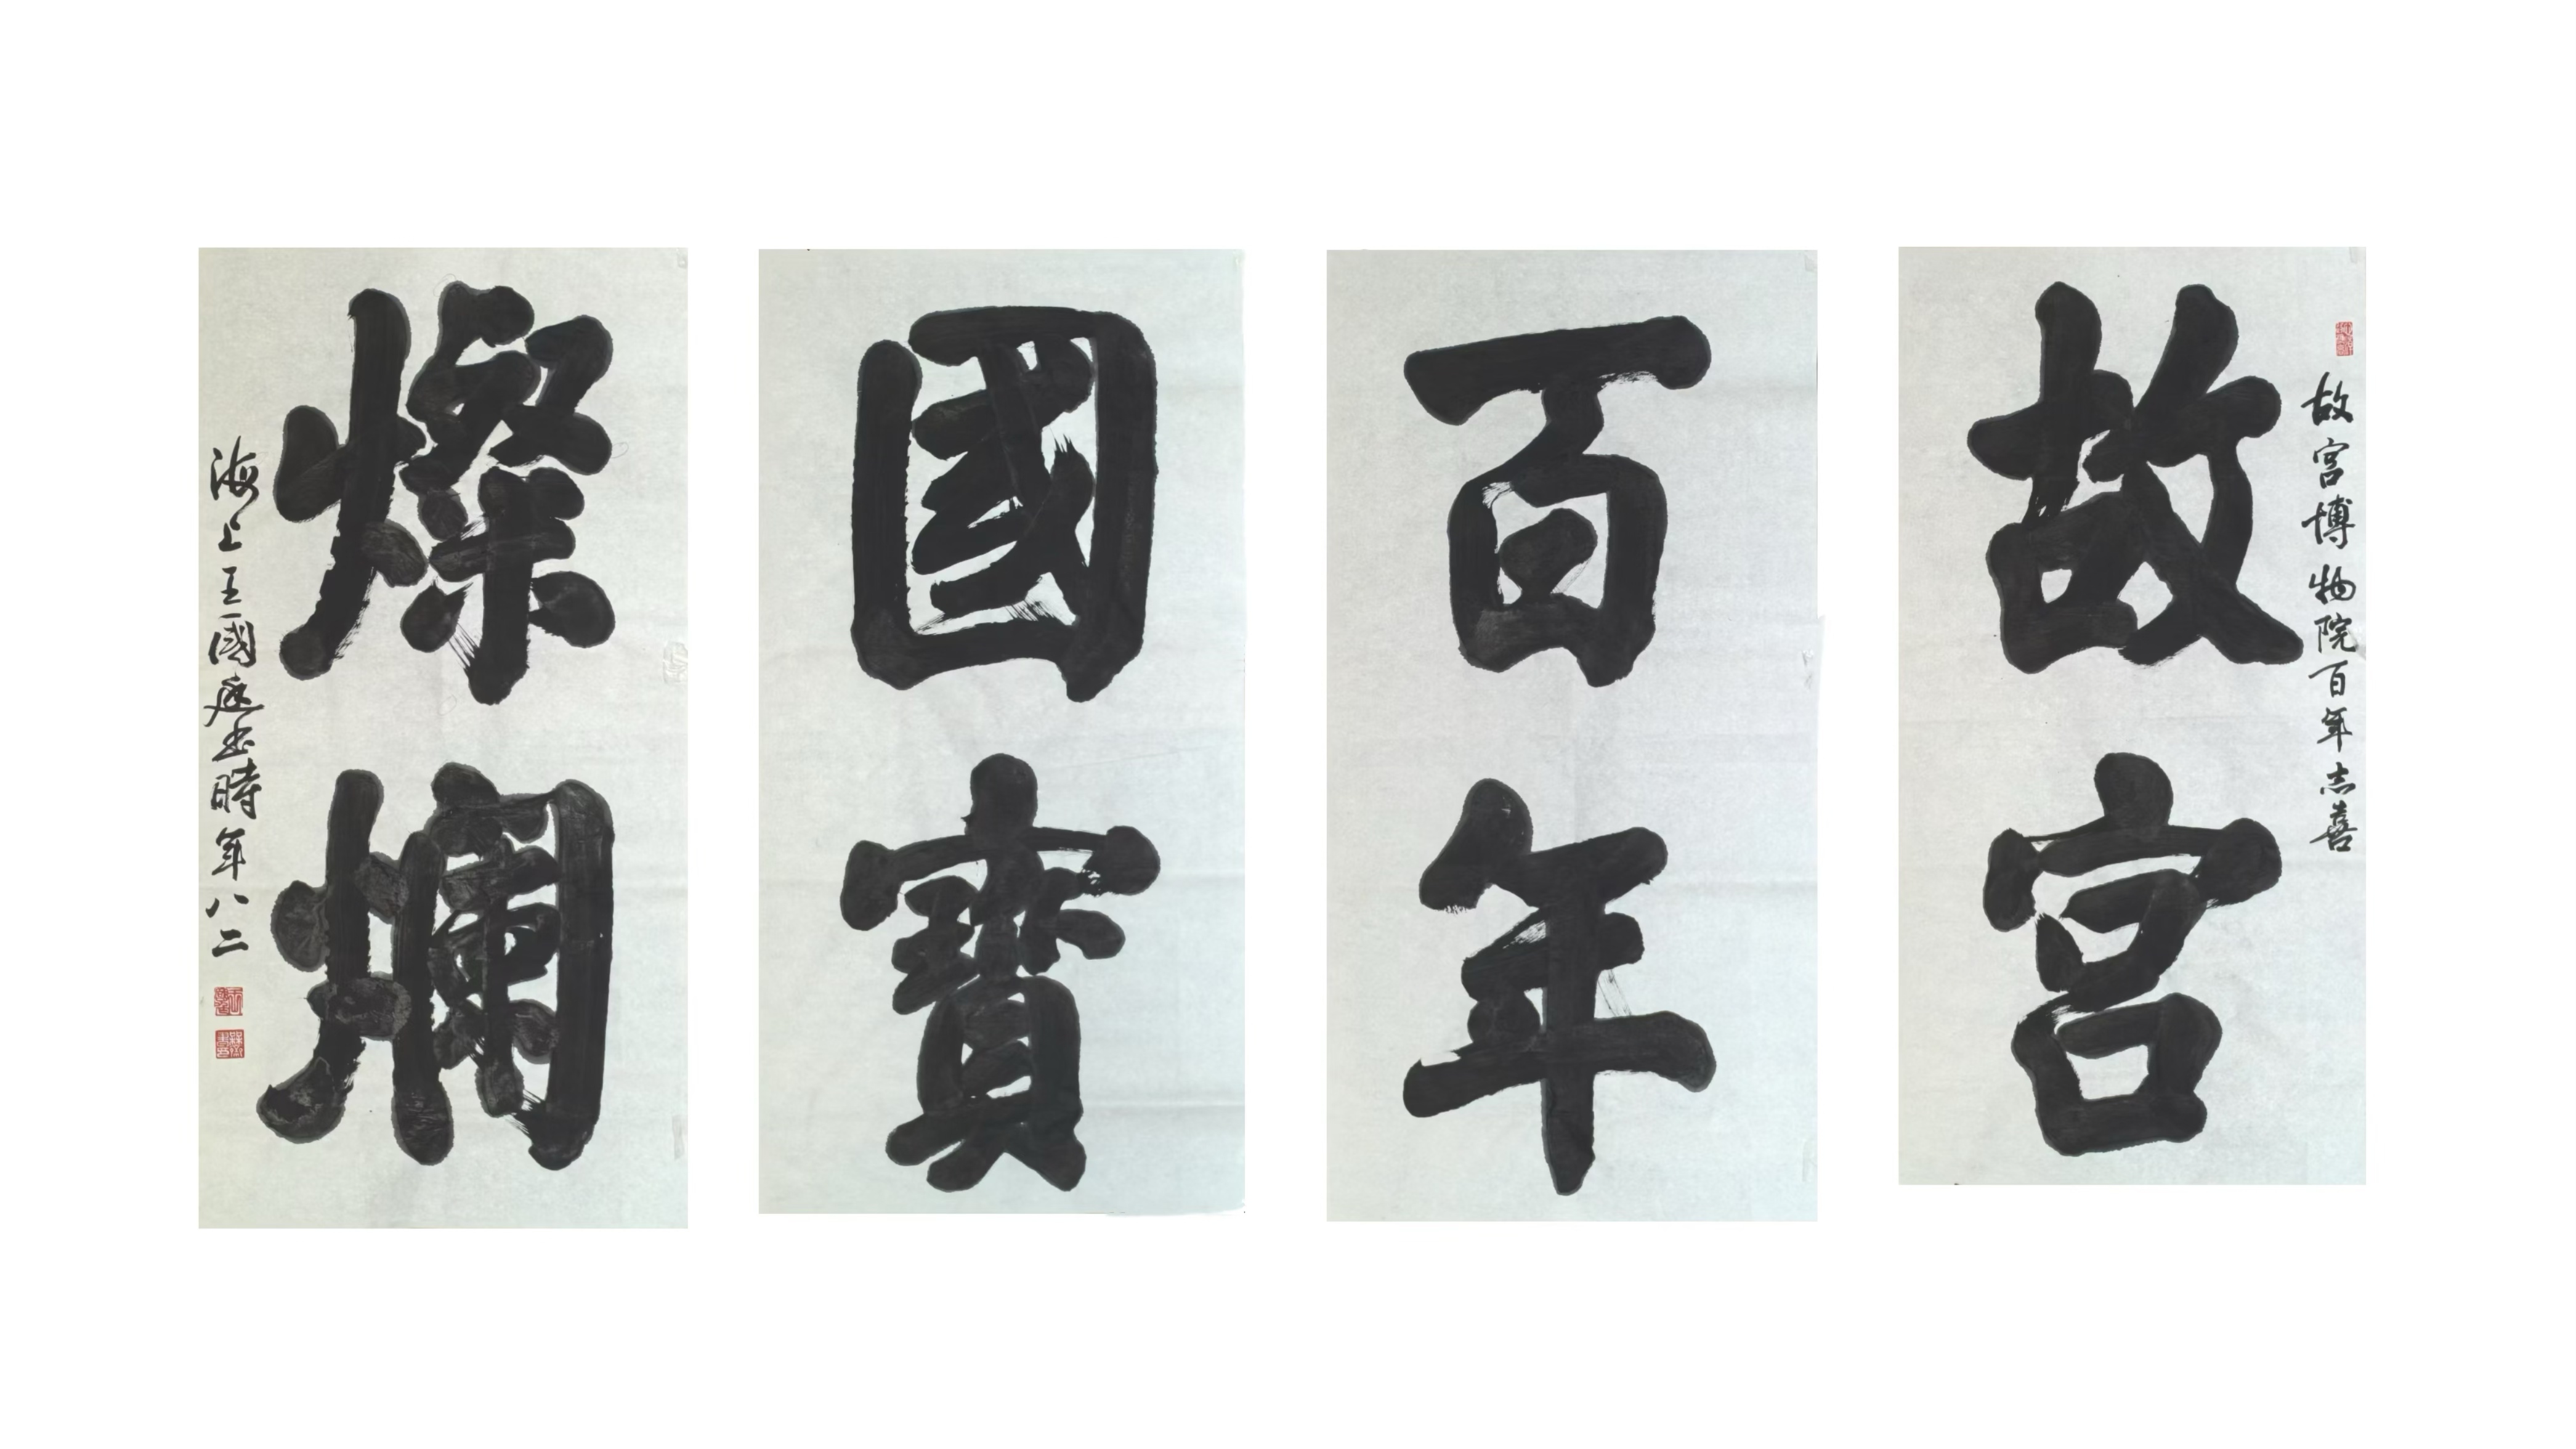 故宮博物院百年志喜
故宮
百年
國寶
燦爛
海上王國庭書時年八二